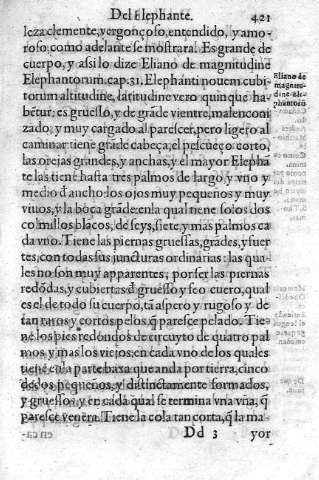 Del Elephante. 421
leza clemente, vergonçoso, entendido, y amo-
roso, como adelante se mostrara. Es grande de
cuerpo, y assi lo dize Eliano de magnitudine
Elephantorum.cap.31. Elephanti nouem cubi-
torum altitudine, latitudine vero quinque ha-
bẽtur: es gruesso, y de grãde vientre, malenconi
zado, y muy cargado al parescer, pero ligero al
caminar tiene grãde cabeça, el pescueço corto,
las orejas grandes, y anchas, y el mayor Elephã
te las tiene hasta tres palmos de largo y vno y
medio d̃ ancho: los ojos muy pequeños y muy
viuos, y la boca grãde: en la qual tiene solos dos
colmillos blãcos, de seys, siete, y mas palmos ca
da vno. Tiene las piernas gruessas, grãdes, y fuer
tes, con todas sus juncturas ordinarias: las qua-
les no son muy apparentes, por ser las piernas
redõdas, y cubiertas d̃ gruesso y feo cuero, qual
es el de todo su cuerpo, tã aspero y rugoso y de
tan raros y cortos pelos, q̃ paresce pelado. Tie-
ne los pies redõdos de circuyto de quatro pal
mos, y mas los viejos, en cada vno de los quales
tiene en la parte baxa que anda por tierra, cinco
dedos pequeños, y distinctamente formados,
y gruessos, y en cada qual se termina vna vña, q̃
paresce venera. Tiene la cola tan corta, q̃ la ma-
Dd 3 yor
Eliano de
magnitu-
dine Ele-
phantorũ